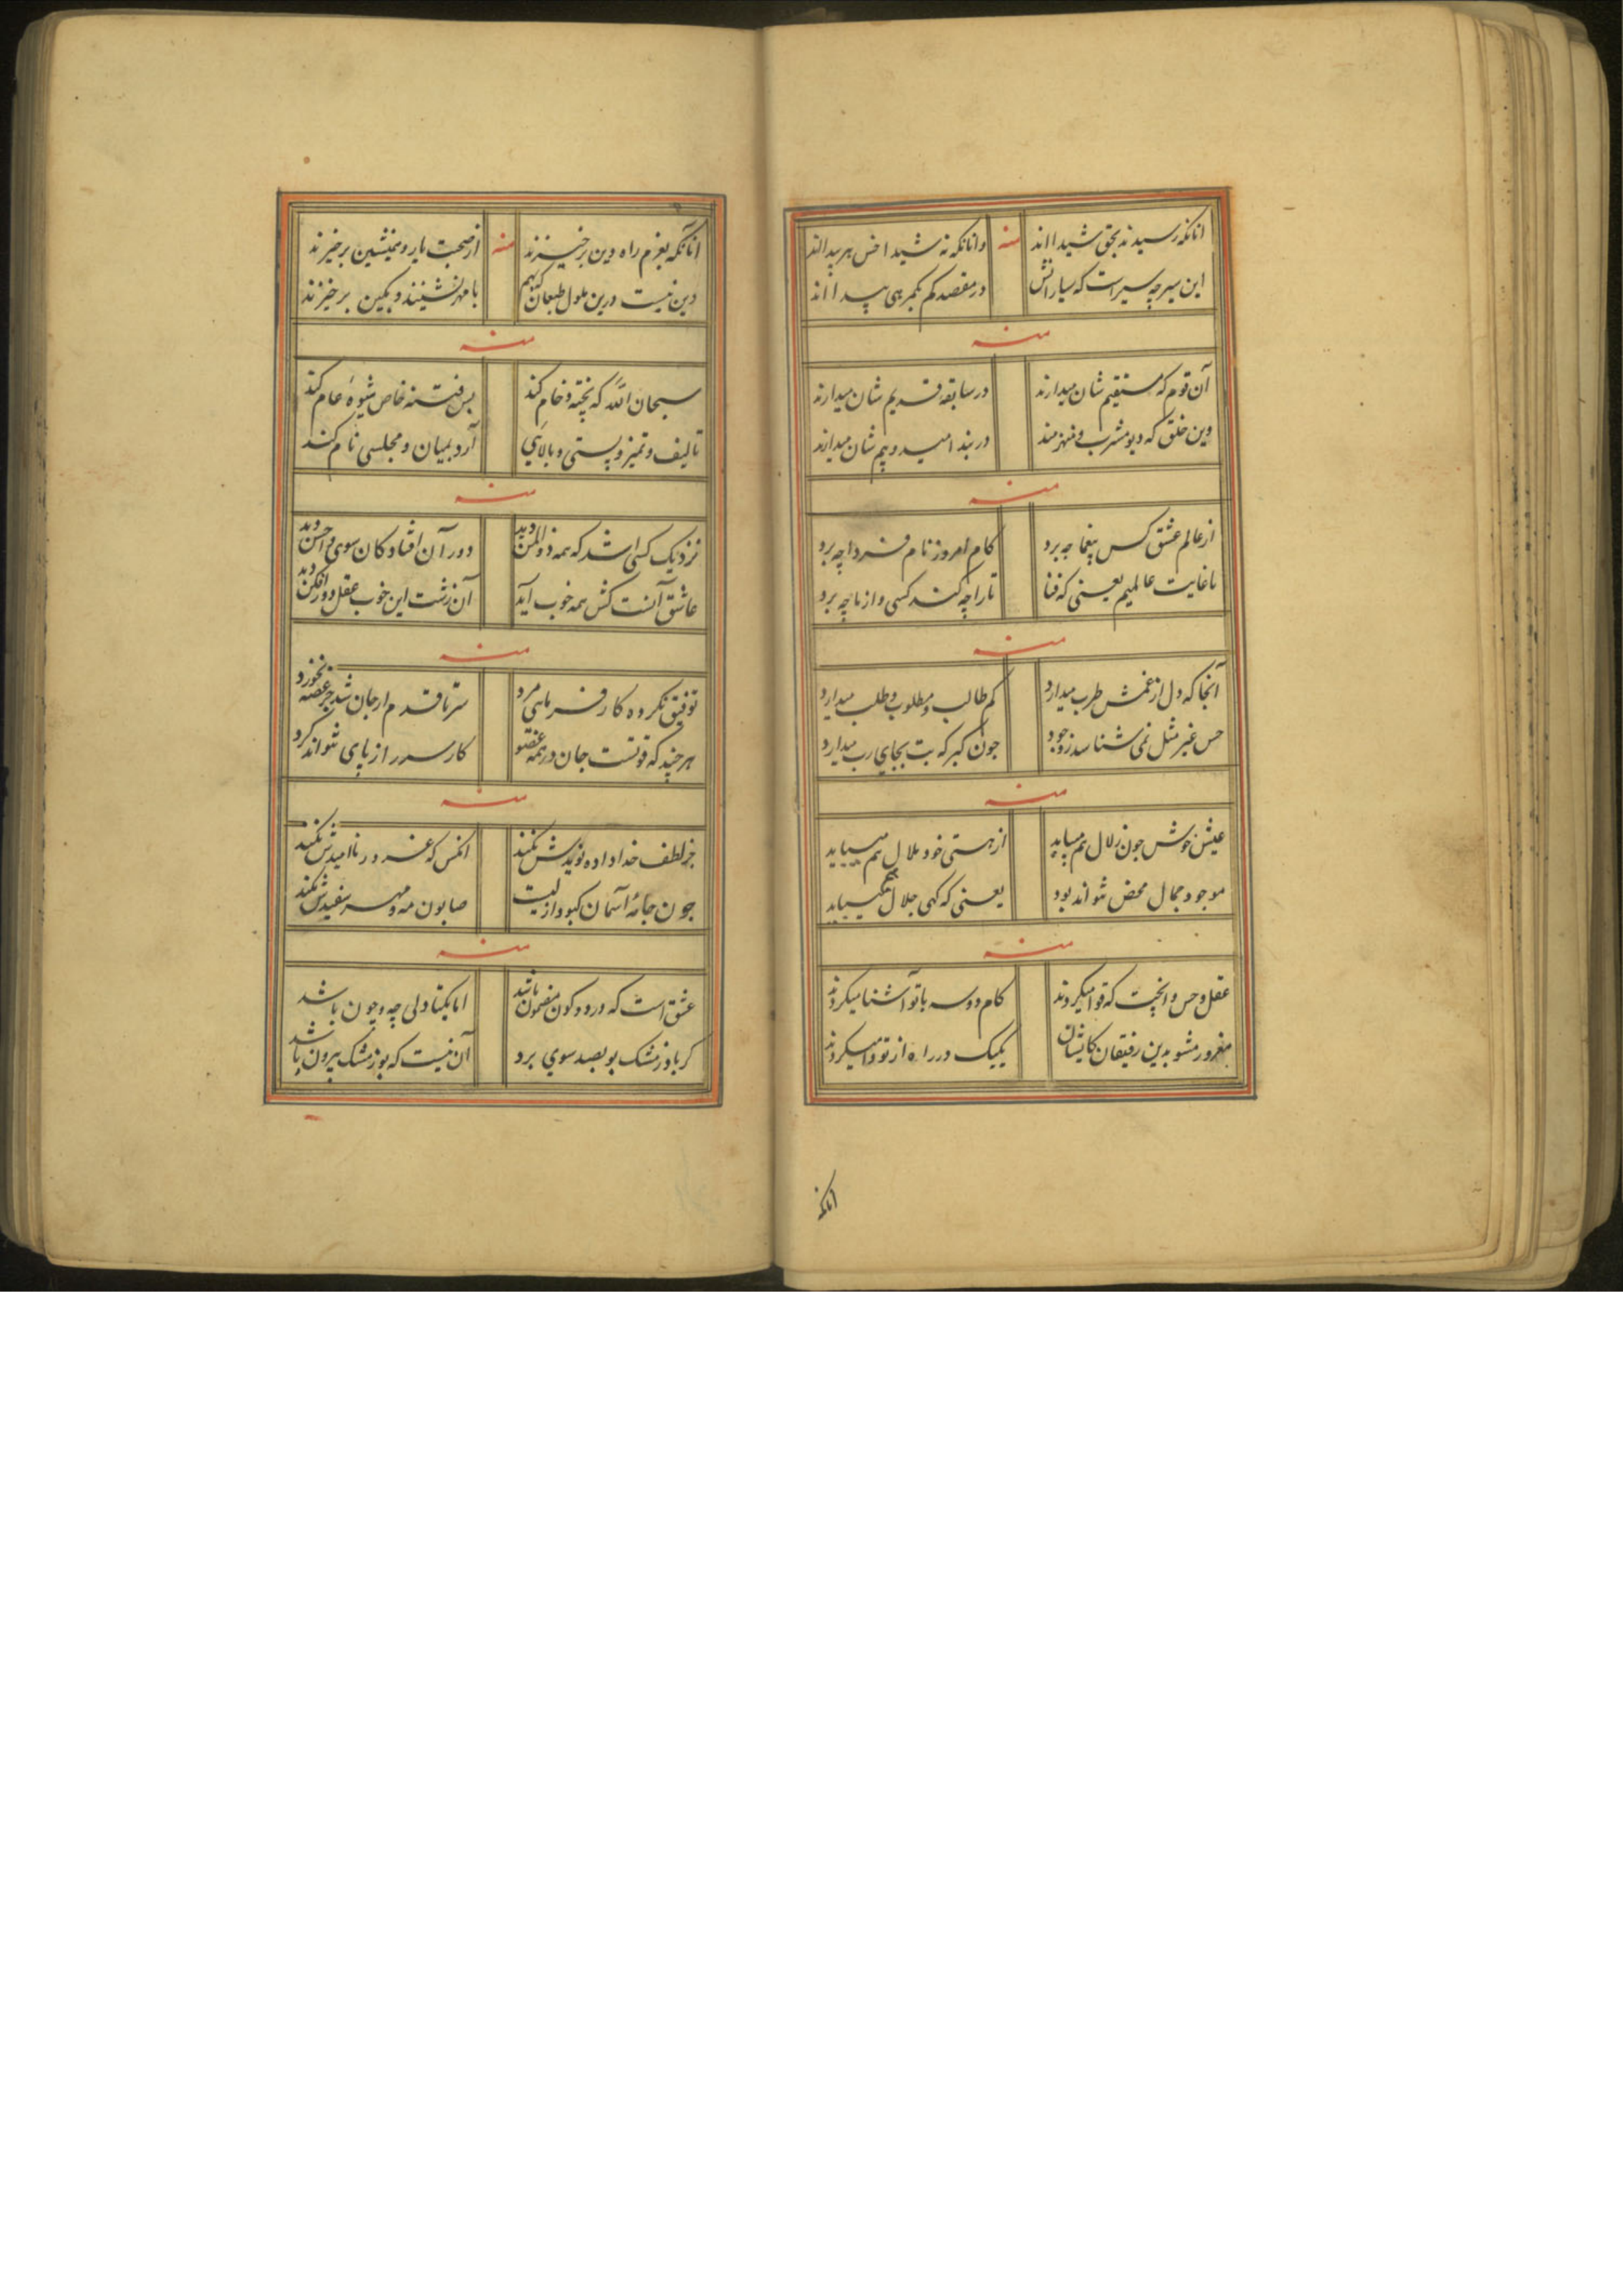 انانکه رسیدند بحق شیدا اند
منه
وانانکه نه شیدا خس هر
این سیر چه سیراست که سیارانش
در مقصد کم بکمرهی پیدا اند
منه
آن قوم که مستقیم شان میدارند
در سابقه قدیم شان میدارند
وین خلق که دیو مشرب و
در بند امید و بیم شان میدارند
منه
از عالم عشق کس بیغما چه برد
کام امروز نام فردا چه برد
ما غایت عالمیم یعنی که فنا
تاراچه کند کسی و از ما چه برد
منه
آنجا که دل از غمش طرب میدارد
کم طالب و مطلوب و طلب میدارد
حس غیر مثل نمی شناسد زوجود
جون کبر که بت بجای رب میدارد
منه
عیش خوش جون زلال هم میباید
از هستی خود ملال هم میباید
موجود جمال محض نتواند بود
یعنی که کهی جلال هم میباید
منه
عقل و حس وانچت که قوا میکردند
کام دوسه با تو آشنا میکردند
مغرور مشو بدین رفیقان کایشان
یکیک در راه از تو وا میکردند
انانکه
انانکه بعزم راه دین برخیزند
منه
از صحبت یار و همنشین برخیزند
دین نیست درین ملول طبعان کبهم
با مهر نشینند و بکین برخیزند
منه
سبحان الله که پخته و خام کند
بس فتنه خاص شیوهٔ عام کند
تالیف و تمیز و پستی و بالایی
آرد بمیان و مجلسی نام کند
منه
نزدیک کسی شد که همه ذوالمن دید
دور آن افتاد کان سوی و احسن دید
عاشق آنست کش همه خوب آید
آن زشت این خوب عقل دور افکن دید
منه
توفیق نکرده کار فرمایی مرد
سرتا قدم ارجان شد جز غصه نخورد
هرچند که قوتست جان در همه عضو
کار سر از پای نتواند کرد
منه
جز لطف خدا داده نویدش نکند
انکس که غرور ناامیدش نکند
جون جامهٔ آسمان کبود ازلیست
صابون مه و مهر سفیدش نکند
منه
عشق است که در دو کون مضمون باشد
اما بکتا دلی چه و چون باشد
کر باد ز مشک بو بصد سوی برد
آن نیست که بو ز مشک بیرون باشد